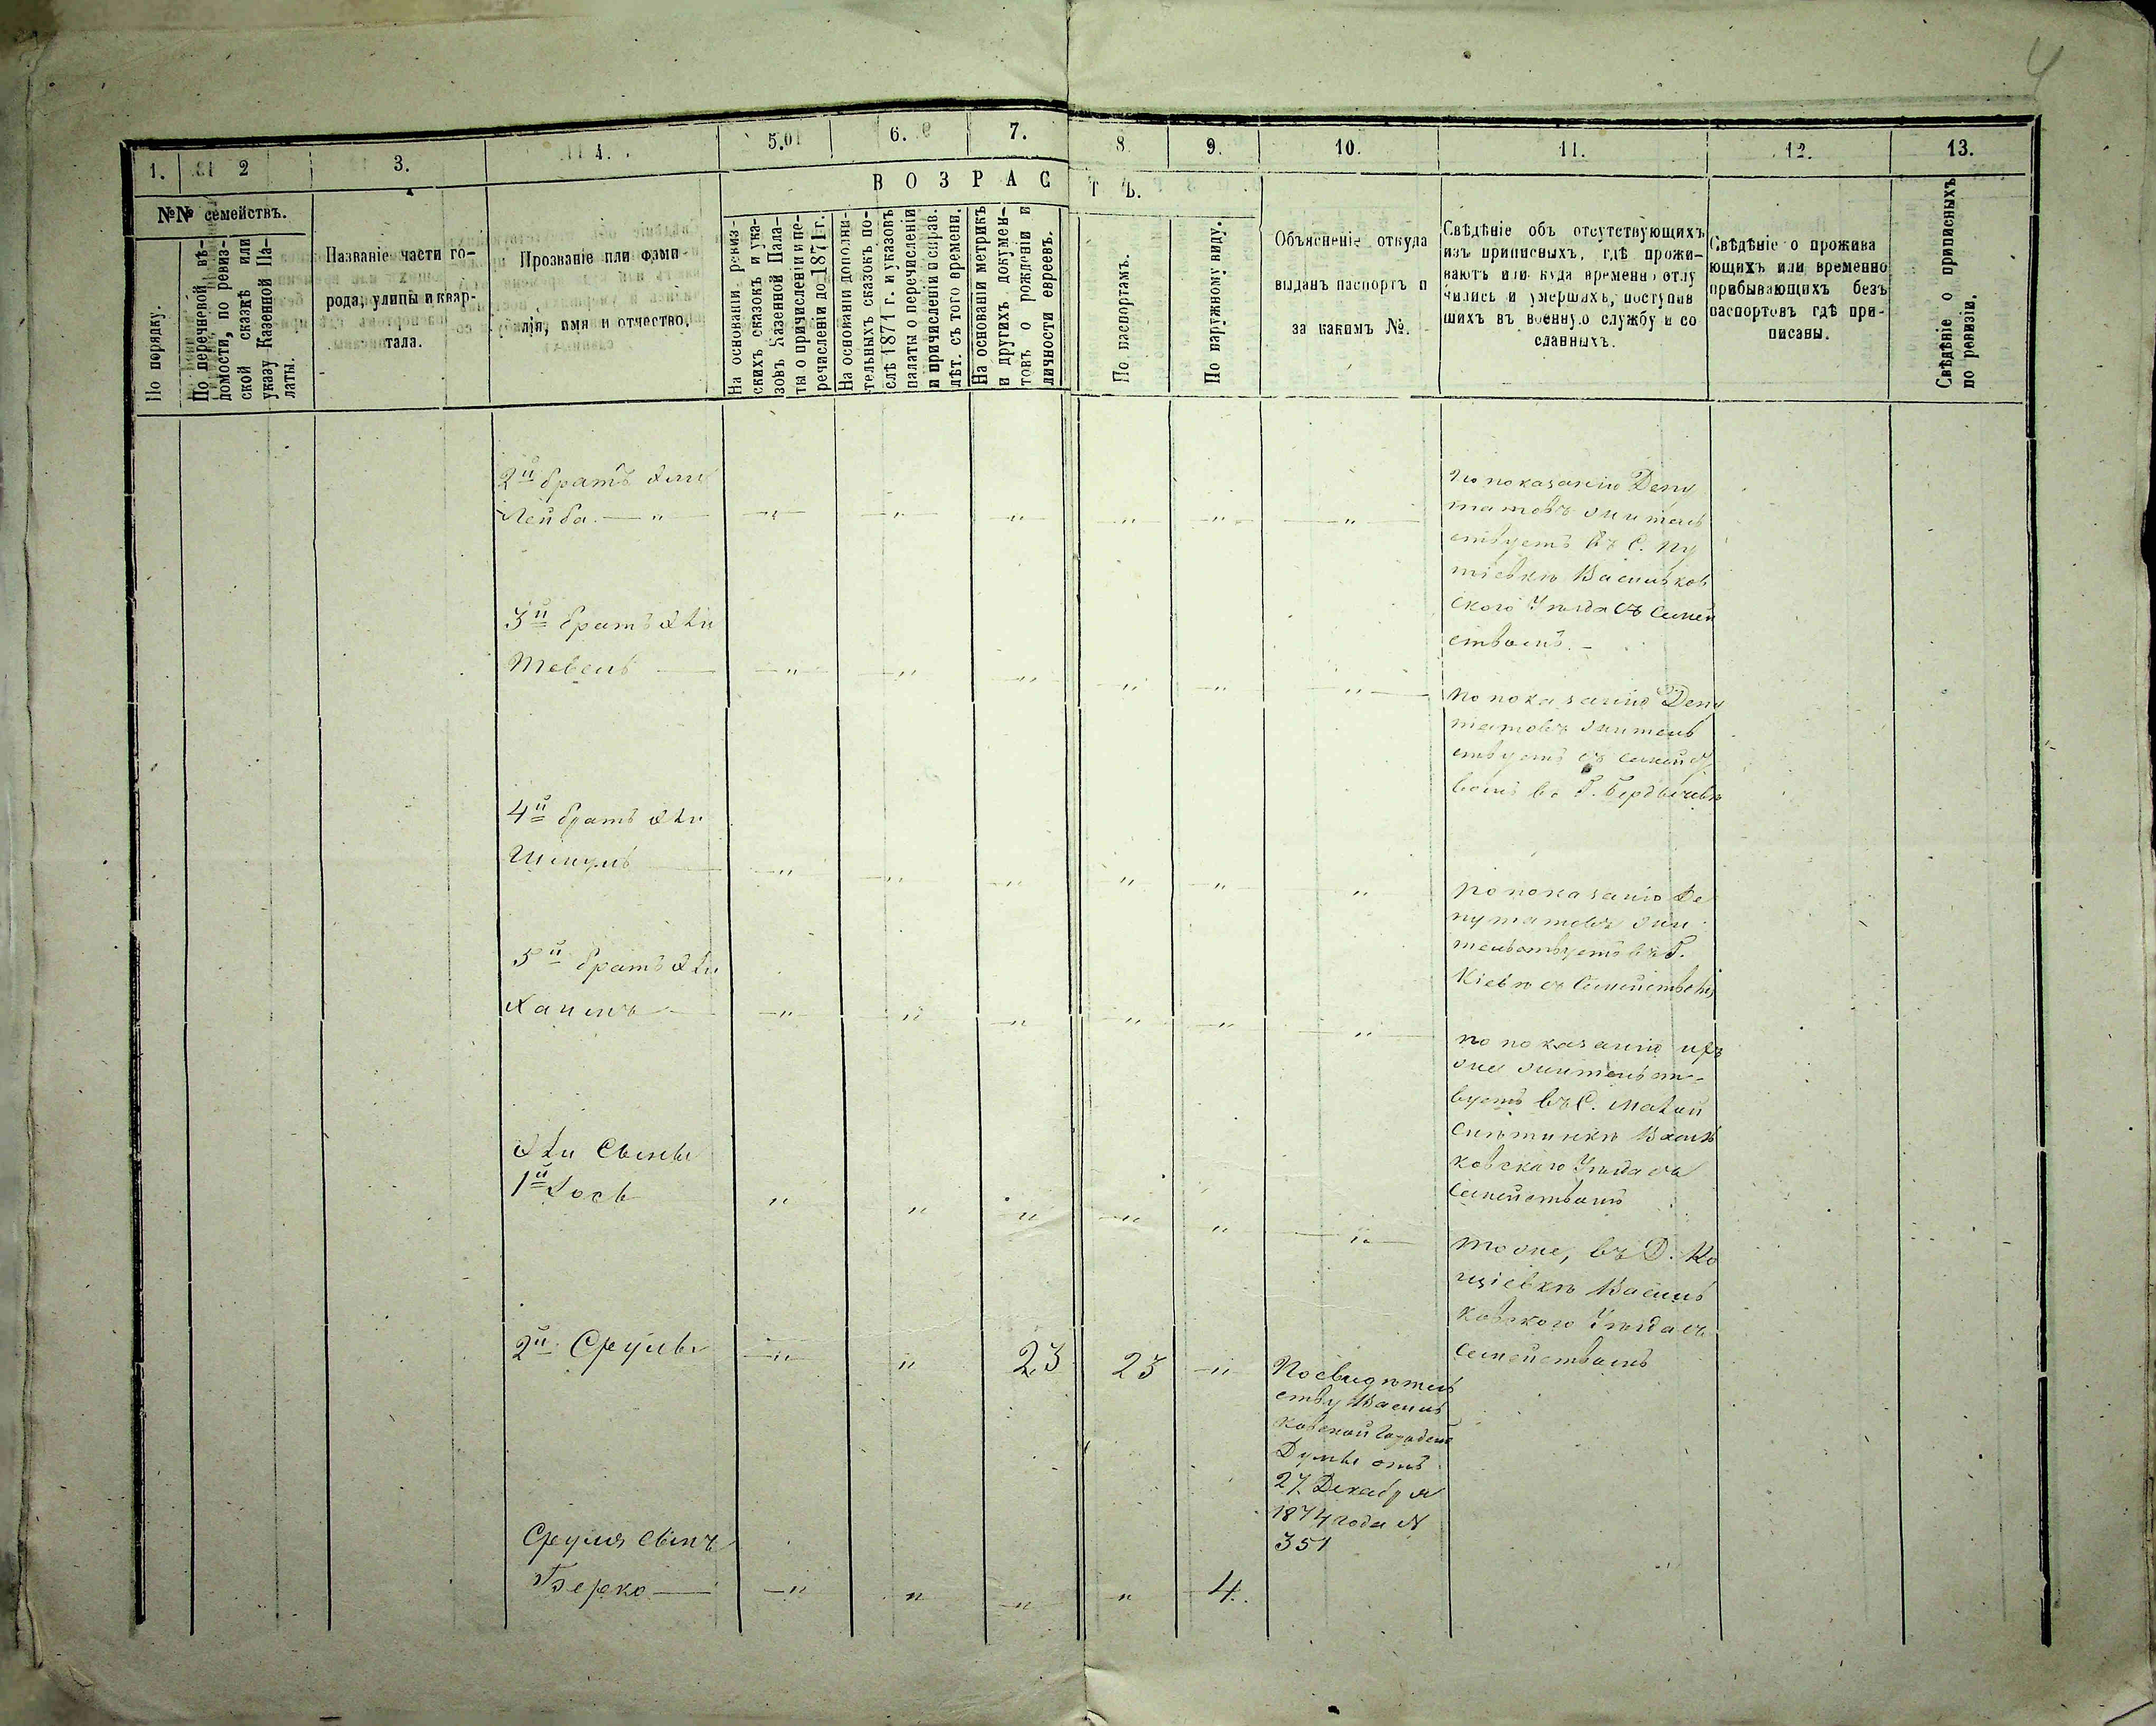 4
1. 2 3. 4. 5. 6. 7. 8. 9. 10. 11. 12. 13.
В О З Р А С Т Ъ.
№№ семействъ.
По порядку.
По перечневой вѣ-
домости, по ревиз-
ской сказкѣ или
указу Казенной Па-
латы.
Названіе части го-
рода, улицы и квар-
тала.
Прозваніе или фами-
лія, имя и отчество.
На основаніи ревиз-
скихъ сказокъ и ука-
зовъ Казенной Пала-
ты о причисленіи и пе-
речисленіи до 1871 г.
На основаніи дополни-
тельныхъ сказокъ по-
слѣ 1871 г. и указовъ
палаты о перечисленіи
и причисленіи и справ.
лѣт. съ того времени.
На основаніи метрикъ
и другихъ докумен-
товъ о рожденіи и
личности евреевъ.
По паспортамъ.
По наружному виду.
Объясненіе откуда
выданъ паспортъ и
за какимъ №.
Свѣдѣніе объ отсутствующихъ
изъ приписныхъ, гдѣ прожи-
ваютъ или куда временно отлу
чились и умершихъ, поступив
шихъ въ военную службу и со
сланныхъ.
Свѣдѣніе о прожива
ющихъ или временно
прибывающихъ безъ
паспортовъ гдѣ при-
писаны.
Свѣдѣніе о приписныхъ
по ревизіи.
2й братъ
Лейба — "
По показанію Депу
татовъ житель
ствуетъ въ С. Пу
тіевкѣ Васильков
ского Уѣзда съ Семей
ствомъ. —
3й братъ
Тевель —
по показанію Депу
татовъ житель
ствуетъ съ семейст
вомъ въ Г. Бердычевѣ
4й братъ
Шмуль
по показанію Де
путатовъ жи
тельствуетъ въ Г.
Кіевѣ съ Семействомъ
5й братъ
Хаимъ —
по показанію ихъ
же жительст-
вуетъ въ С. Малой
Снѣтинкѣ Василь
ковского Уѣзда съ
Семействомъ
Сыновья
1й Іось
тоже, въ Д.
Василь
ковского Уѣзда съ
Семействомъ
2й Сруль " " 23 23 "
По свидѣтель
ству Василь
ковской Городской
Думы отъ
27 Декабря
1874 года №
351
Сруля сынъ
Берко — " " " " 4.